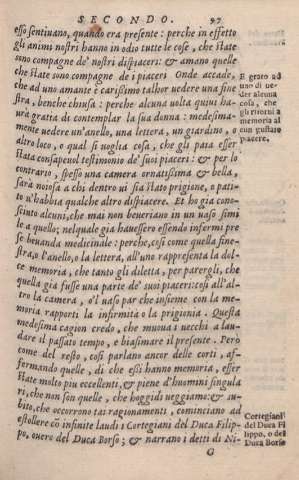 SECONDO. 97
esso sentiuano, quando era presente: perche in effetto
gli animi nostri hanno in odio tutte le cose, che state
sono compagne de' nostri dispiaceri: & amano quelle
che state sono compagne de i piaceri Onde accade,
che ad uno amante è carissimo talhor uedere una fine
stra, benche chiusa: perche alcuna uolta quiui ha-
urà gratia di contemplar la sua donna: medesima-
mente uedere un'anello, una lettera, un giardino, o
altro loco, o qual si uoglia cosa, che gli paia esser
stata consapeuol testimonio de' suoi piaceri: & per lo
contrario, spesso una camera ornatissima & bella,
sarà noiosa a chi dentro ui sia stato prigione, o pati-
to u'habbia qualche altro dispiacere. Et ho gia cono-
sciuto alcuni, che mai non beueriano in un uaso simi
le a quello; nelquale gia hauessero essendo infermi pre
so beuanda medicinale: perche, cosi come quella fine-
stra, o l'anello, o la lettera, all'uno rappresenta la dol-
ce memoria, che tanto gli diletta, per parergli, che
quella gia fusse una parte de' suoi piaceri: cosi all'al-
tro la camera, o'l uaso par che insieme con la me-
moria rapporti la infirmità o la prigionia. Questa
medesima cagion credo, che muoua i uecchi a lau-
dare il passato tempo, e biasimare il presente. Però
come del resto, cosi parlano ancor delle corti, af-
fermando quelle, di che essi hanno memoria, esser
state molto piu eccellenti, & piene d'huomini singula
ri, che non son quelle, che hoggidi ueggiamo: & su-
bito, che occorrono tai ragionamenti, cominciano ad
estollere cō infinite laudi i Cortegiani del Duca Filip-
po, ouero del Duca Borso; & narrano i detti di Ni-
G
E grato ad
uno di ue-
der alcuna
cosa, che
gli ritorni a
memoria al
cun gustato
piacere,
Cortegiani
del Duca Fi
lippo, o del
Duca Borso